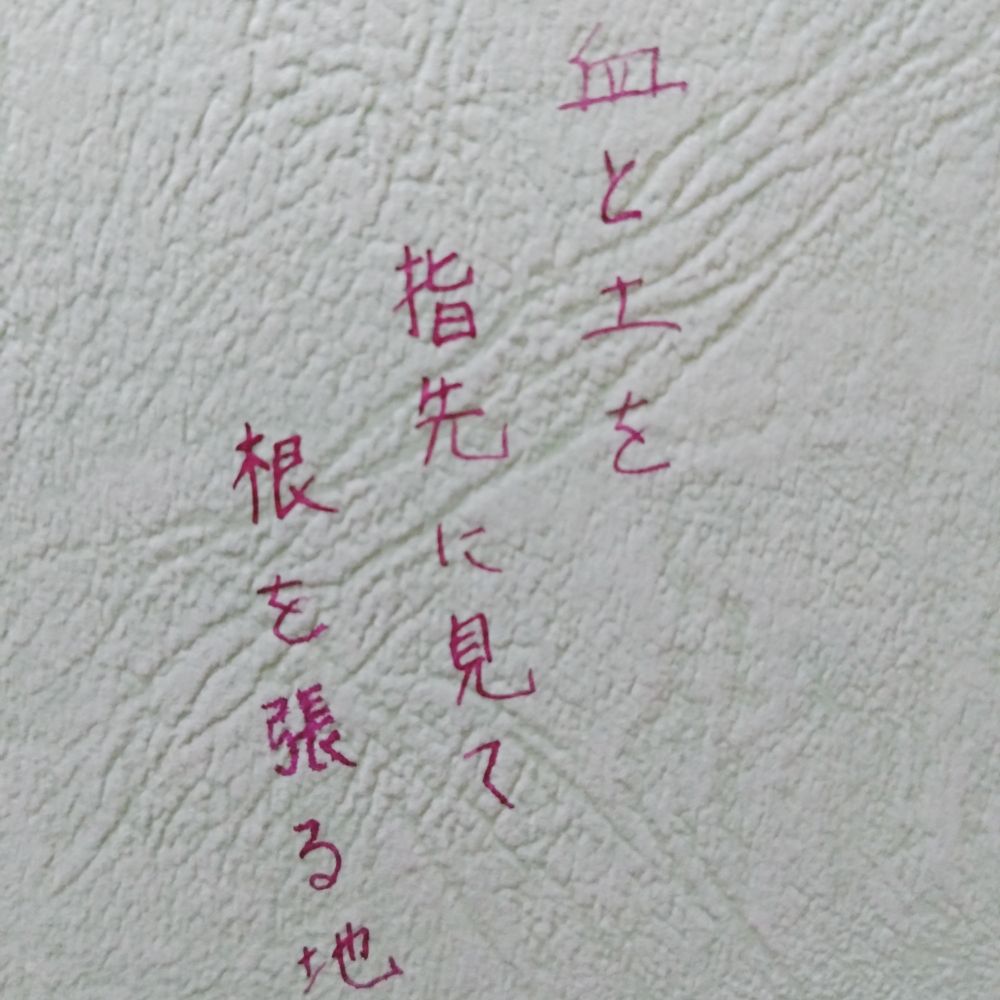 血と土を
指先に見て
根を張る地